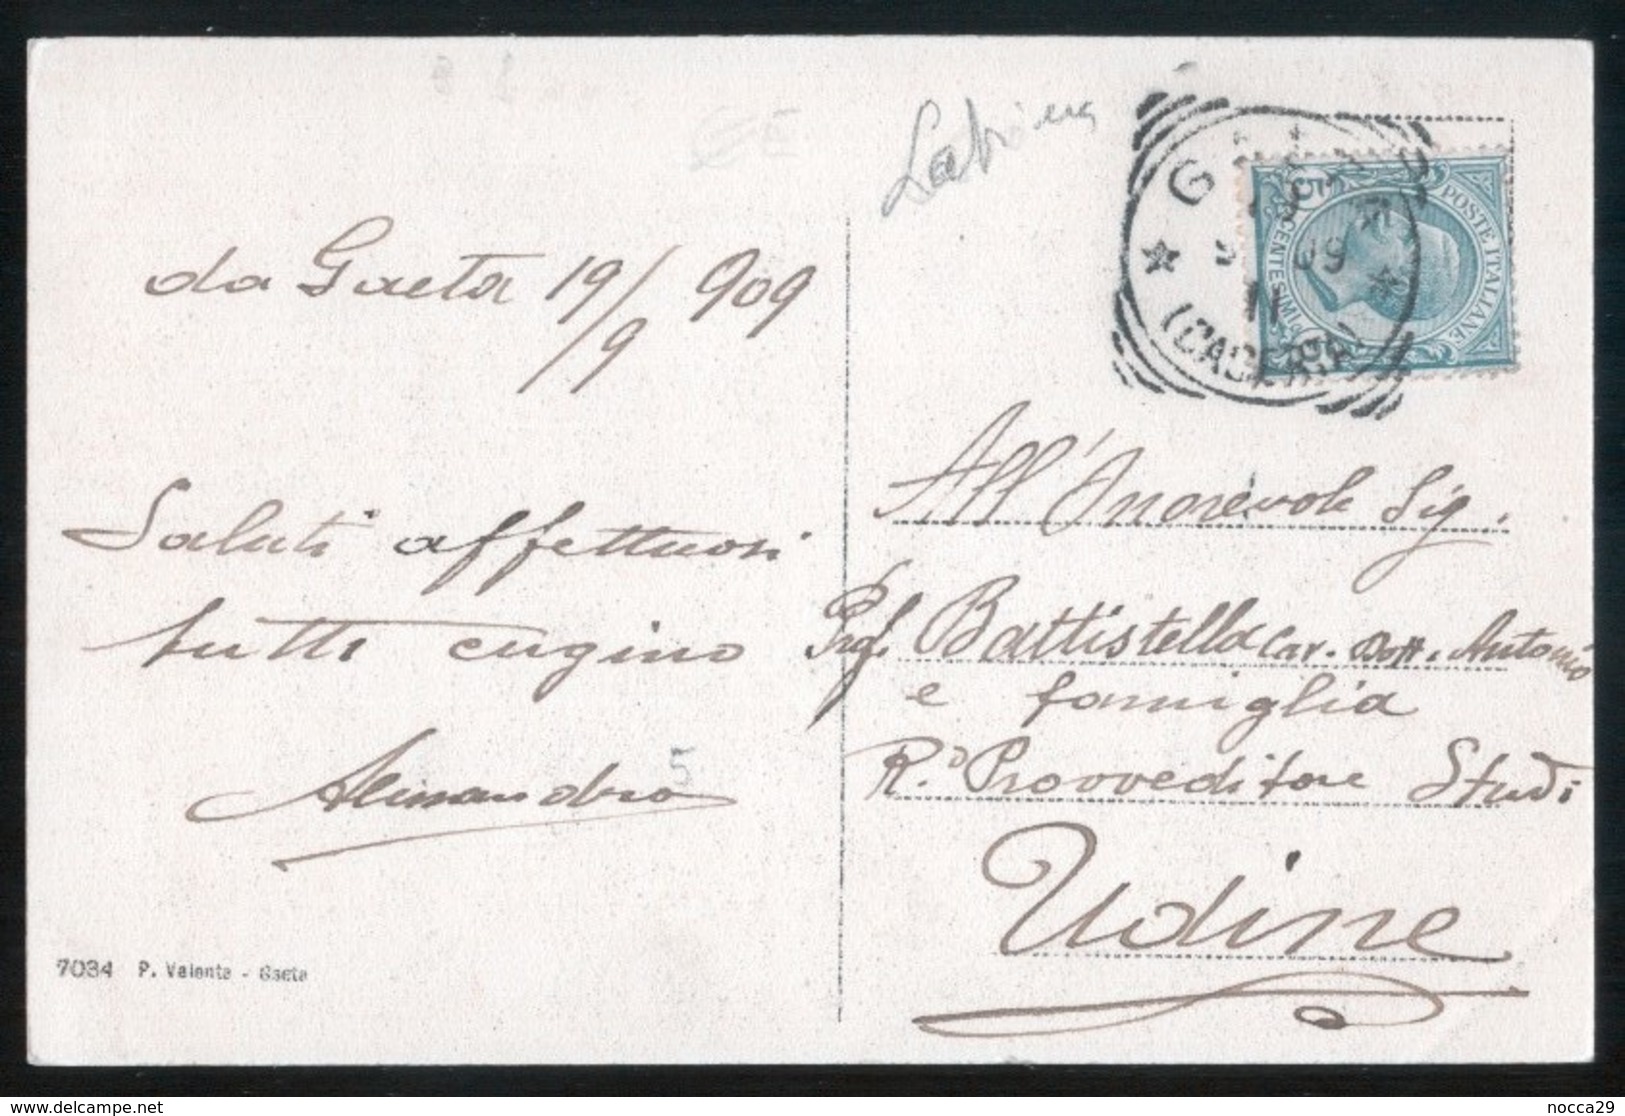 da Gaeta 19/9 909
Saluti affettuosi
tutti cugino
Alessandro
5
7034 P. Valente - Gaeta
(CASERTA)
09
11
POSTE ITALIANE
CENTESIMI
All'Onorevole Sig.
Prof. Battistella Cav. Dott. Antonio
e famiglia
R.o Provveditore Studi
Udine
delcampe.net
nocca29